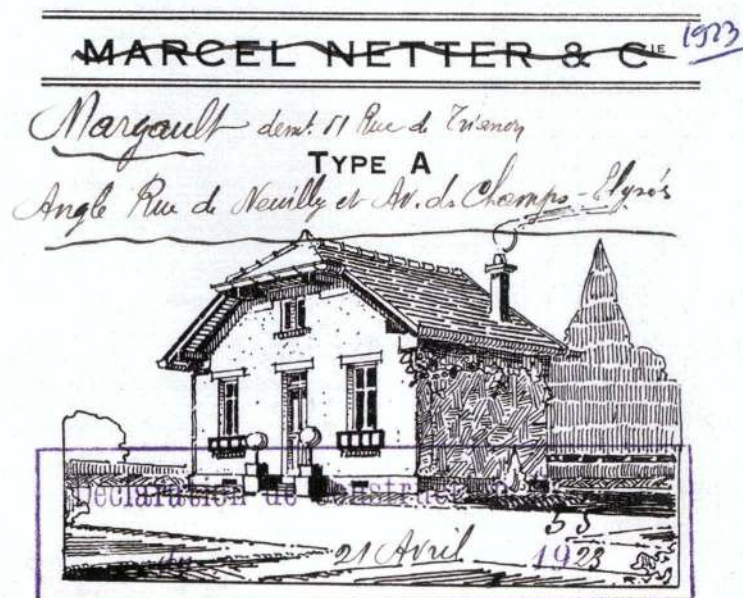 1923
MARCEL NETTER & CIE
Margault demt. 11 Rue de Trianon
TYPE A
Angle Rue de Neuilly et Av. ds Champs-Elysés
Déclaration de Construct
55
du 21 Avril 1923